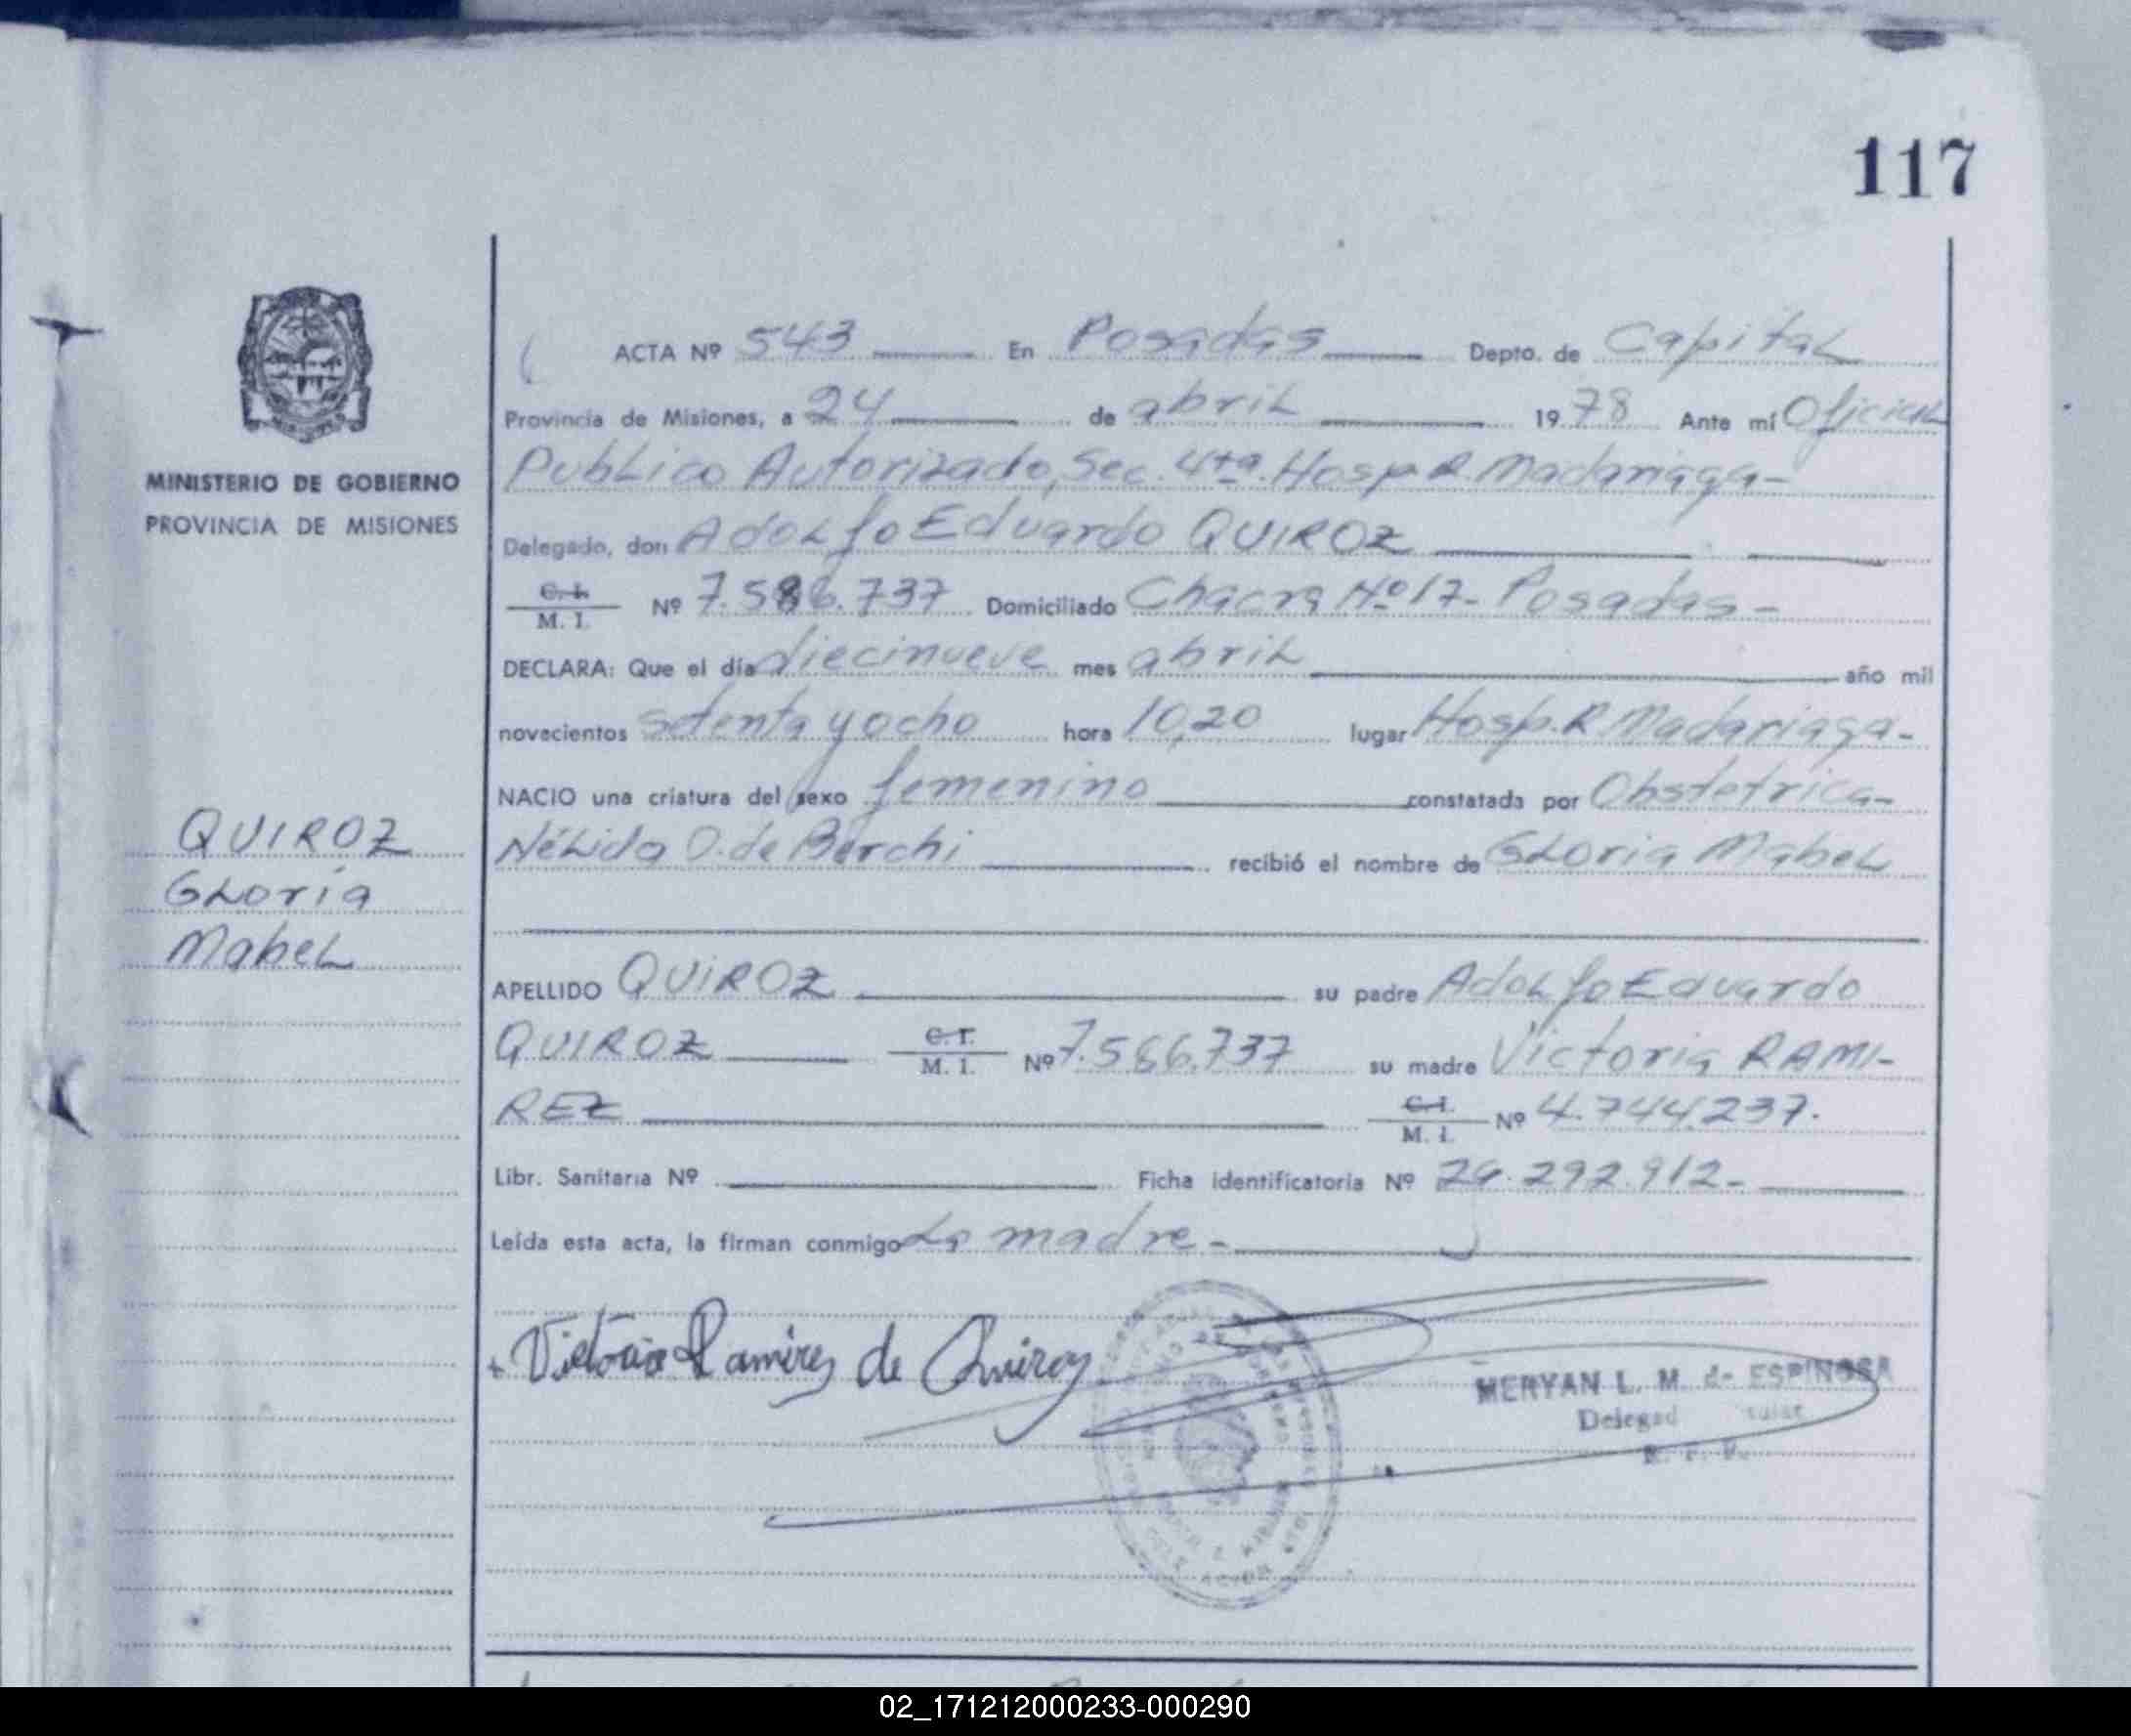 117
ACTA Nº 543 En Posadas Depto. de Capital
Provincia de Misiones, a 24 de abril 1978 Ante mí Oficial
Publico Autorizado, Sec. 4ta. Hosp R. Madariaga-
MINISTERIO DE GOBIERNO
PROVINCIA DE MISIONES
Delegado, don Adolfo Eduardo QUIROZ
C. I.
M. I. Nº 7.586.737 Domiciliado Chacra Nº 17- Posadas-
DECLARA: Que el día diecinueve mes abril año mil
novecientos setenta y ocho hora 10,20 lugar Hosp. R Madariaga-
NACIO una criatura del sexo femenino constatada por Obstetrica-
Nélida O. de Borchi recibió el nombre de Gloria Mabel
QUIROZ
Gloria
Mabel
APELLIDO QUIROZ su padre Adolfo Eduardo
QUIROZ C. I.
M. I. Nº 7.586.737 su madre Victoria RAMI-
REZ C. I.
M. I. Nº 4.744.237.
Libr. Sanitaria Nº Ficha identificatoria Nº 29.292.912-
Leída esta acta, la firman conmigo La madre-
Victoria Ramirez de Quiroz
MERYAN L. M. de ESPINOSA
02_171212000233-000290